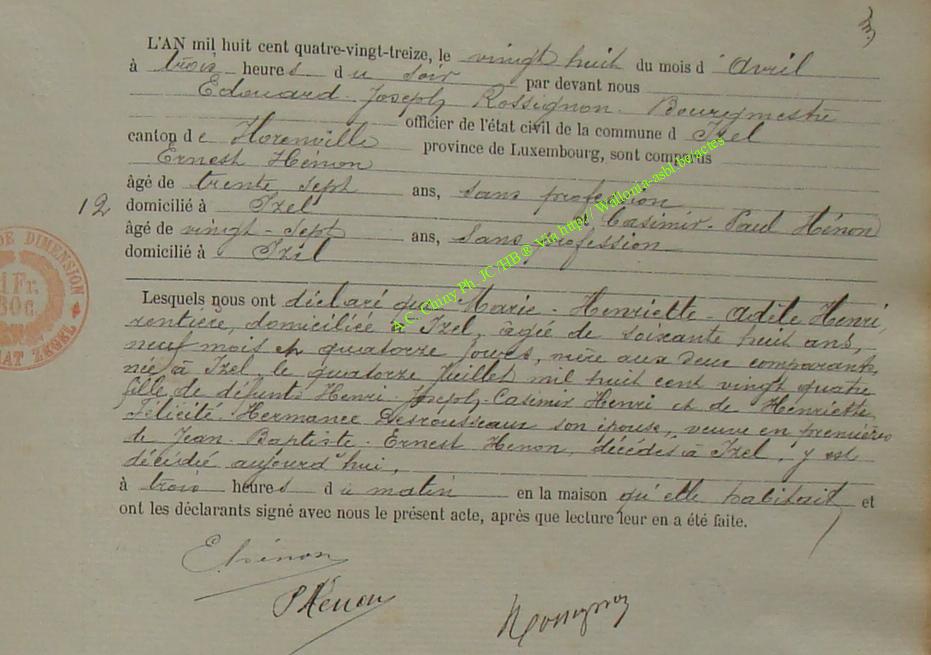 L'AN mil huit cent quatre-vingt-treize, le vingt huit du mois d'Avril
à trois heures du soir par devant nous
Edouard-Joseph Rossignon-Bourgmestre
officier de l'état civil de la commune d Izel
canton de Florenville province de Luxembourg, sont comparus
Ernest Hénon
âgé de trente sept ans, sans profession
12
domicilié à Izel Casimir-Paul Hénon
âgé de vingt-sept ans, sans profession
domicilié à Izel
DE DIMENSION
1 Fr.
30c.
ZEGEL
Lesquels nous ont déclaré que Marie-Henriette-Adèle Henri,
rentière, domiciliée à Izel, âgée de soixante huit ans,
neuf mois et quatorze jours, mère aux deux comparants,
née à Izel, le quatorze Juillet mil huit cent vingt quatre
fille de défunts Henri-Joseph-Casimir Henri et de Henriette
Félicité-Hermance Desrousseaux son épouse, veuve en premières
de Jean-Baptiste-Ernest Henon, décédés à Izel, y est
décédée aujourd'hui,
à trois heures du matin en la maison qu'elle habitait, et
ont les déclarants signé avec nous le présent acte, après que lecture leur en a été faite.
E Hénon
P Hénon
Rossignon
A.C. Chiny Ph. JC 7HB ® via http:// Wallonia-asbl.be/actes